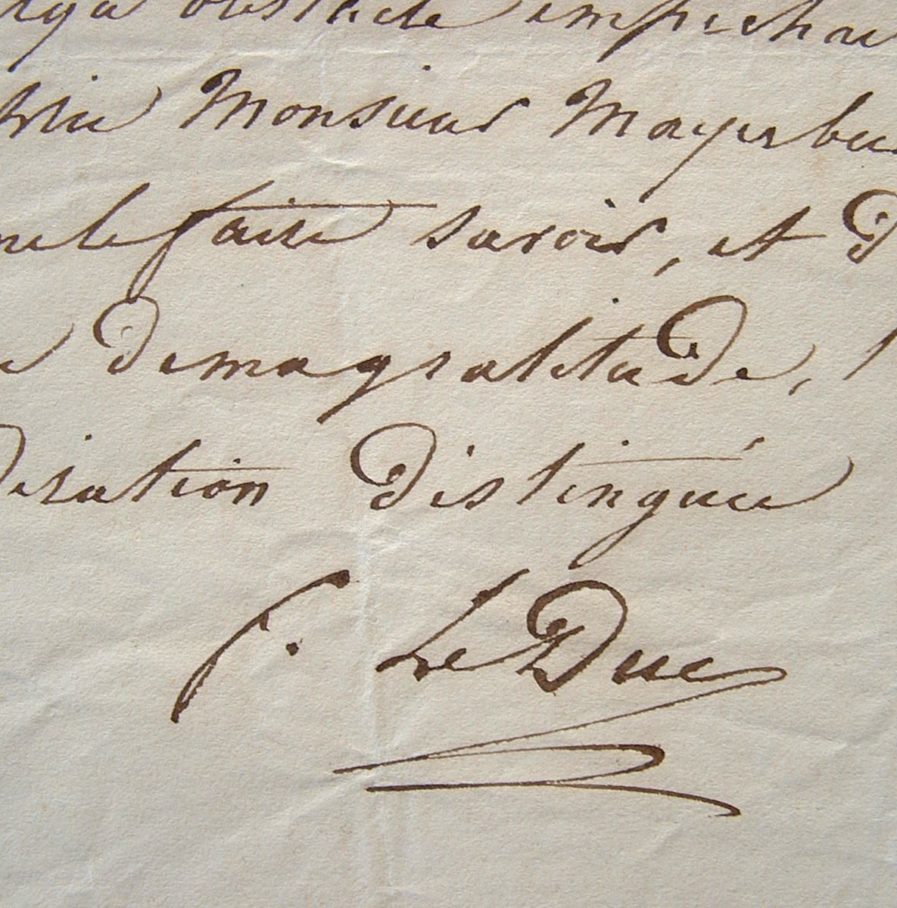 obstacle empecha
Monsieur Mayerbe
me le faire savoir, et d
de ma gratitude, l
deration distinguée
f. Le Duc